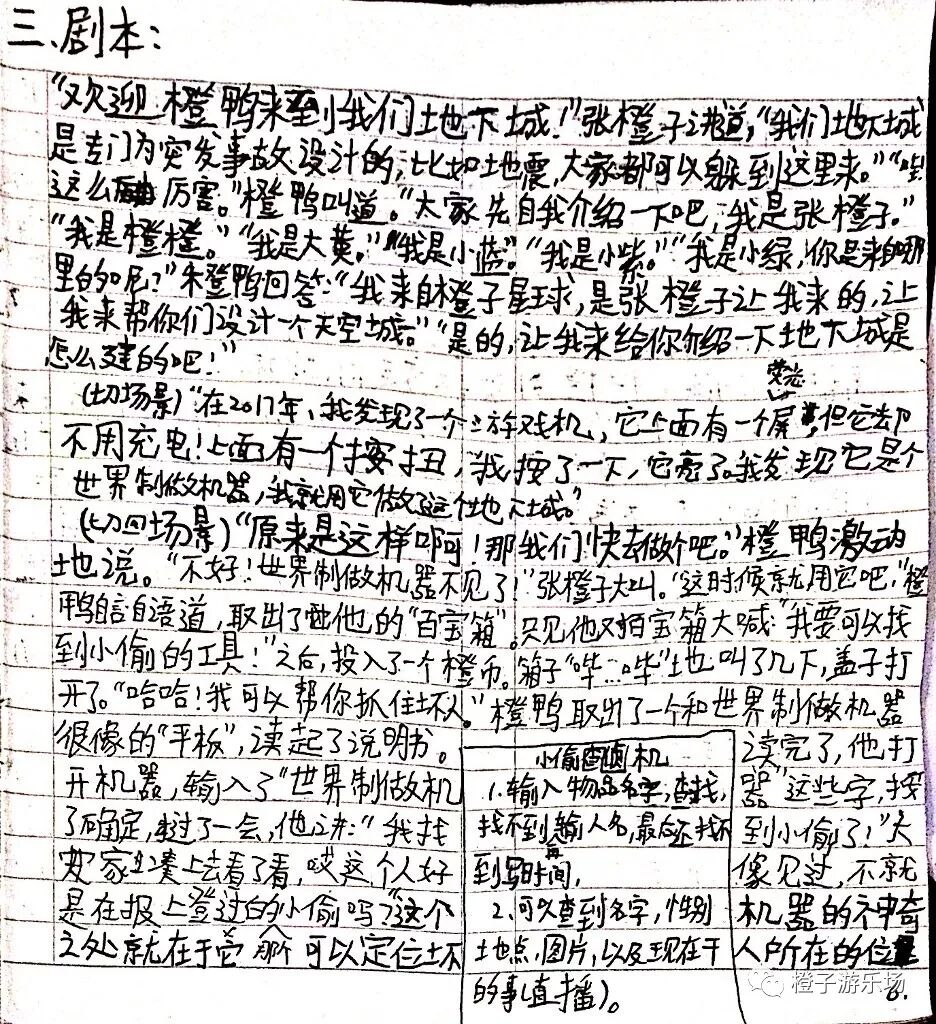 三、剧本:
“欢迎橙鸭来到我们地下城!”张橙子说道,“我们地下城
是专门为突发事故设计的,比如地震,大家都可以躲到这里来。”“哇
这么厉害。”橙鸭叫道。“大家先自我介绍一下吧,我是张橙子。”
“我是橙橙。”“我是大黄。”“我是小蓝。”“我是小紫。”“我是小绿,你是来自哪
里的呢?”橙鸭回答:“我来自橙子星球,是张橙子让我来的,让
我来帮你们设计一个天空城。”“是的,让我来给你介绍一下地下城是
怎么建的吧!”
(切场景)“在2017年,我发现了一个游戏机,它上面有一个荧光屏,但它却
不用充电!上面有一个按扭,我按了一下,它亮了。我发现它是个
世界制做机器,我就用它做了这个地下城。”
(切回场景)“原来是这样啊!那我们快去做个吧。”橙鸭激动
地说。“不好!世界制做机器不见了!”张橙子大叫。“这时候就用它吧,”橙
鸭自言自语道,取出了他的“百宝箱”。只见他对百宝箱大喊:“我要可以找
到小偷的工具!”之后,投入了一个橙币。箱子“哔…哔”地叫了几下,盖子打
开了。“哈哈!我可以帮你抓住坏人。”橙鸭取出了一个和世界制做机器
很像的“平板”,读起了说明书。
小偷查询机
1.输入物品名字,查找,
找不到输人名,最后还找不
到再写时间,
2.可以查到名字,性别
地点,图片,以及现在干
的事(直播)。
读完了,他打
开机器,输入了“世界制做机器”这些字,按
了确定,过了一会,他说:“我找到小偷了!”大
家凑上去看了看,哎这个人好像见过,不就
是在报上登过的小偷吗?”这个机器的神奇
之处就在于它可以定位坏人所在的位置
6.
橙子游乐场